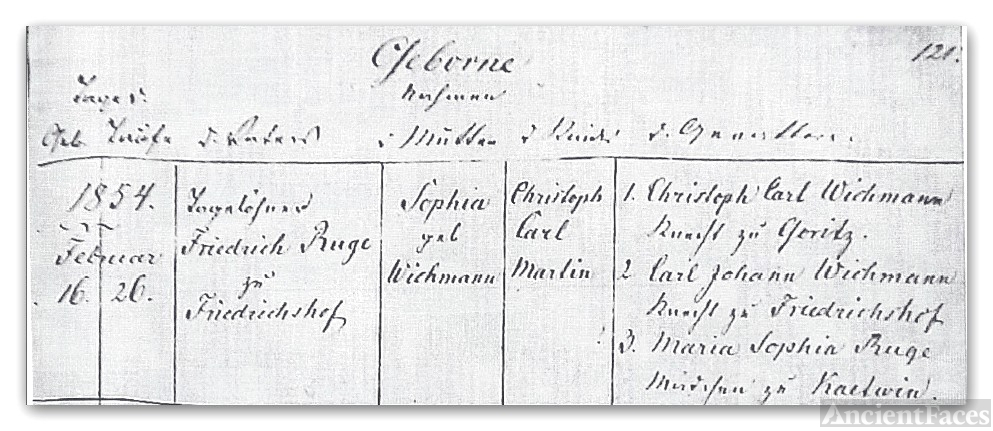 Geborne
121.
Tages
Nahmen
Geb. Taufe d. Vaters d. Mutter d. Kindes d. Gevattern.
1854.
Februar
16. 26.
Tagelöhner
Friedrich Ruge
zu
Friedrichshof
Sophia
geb
Wichmann
Christoph
Carl
Martin
1. Christoph Carl Wichmann
Knecht zu Goritz.
2. Carl Johann Wichmann
Knecht zu Friedrichshof
3. Maria Sophia Ruge
Mädchen zu Kaetwin.
AncientFaces